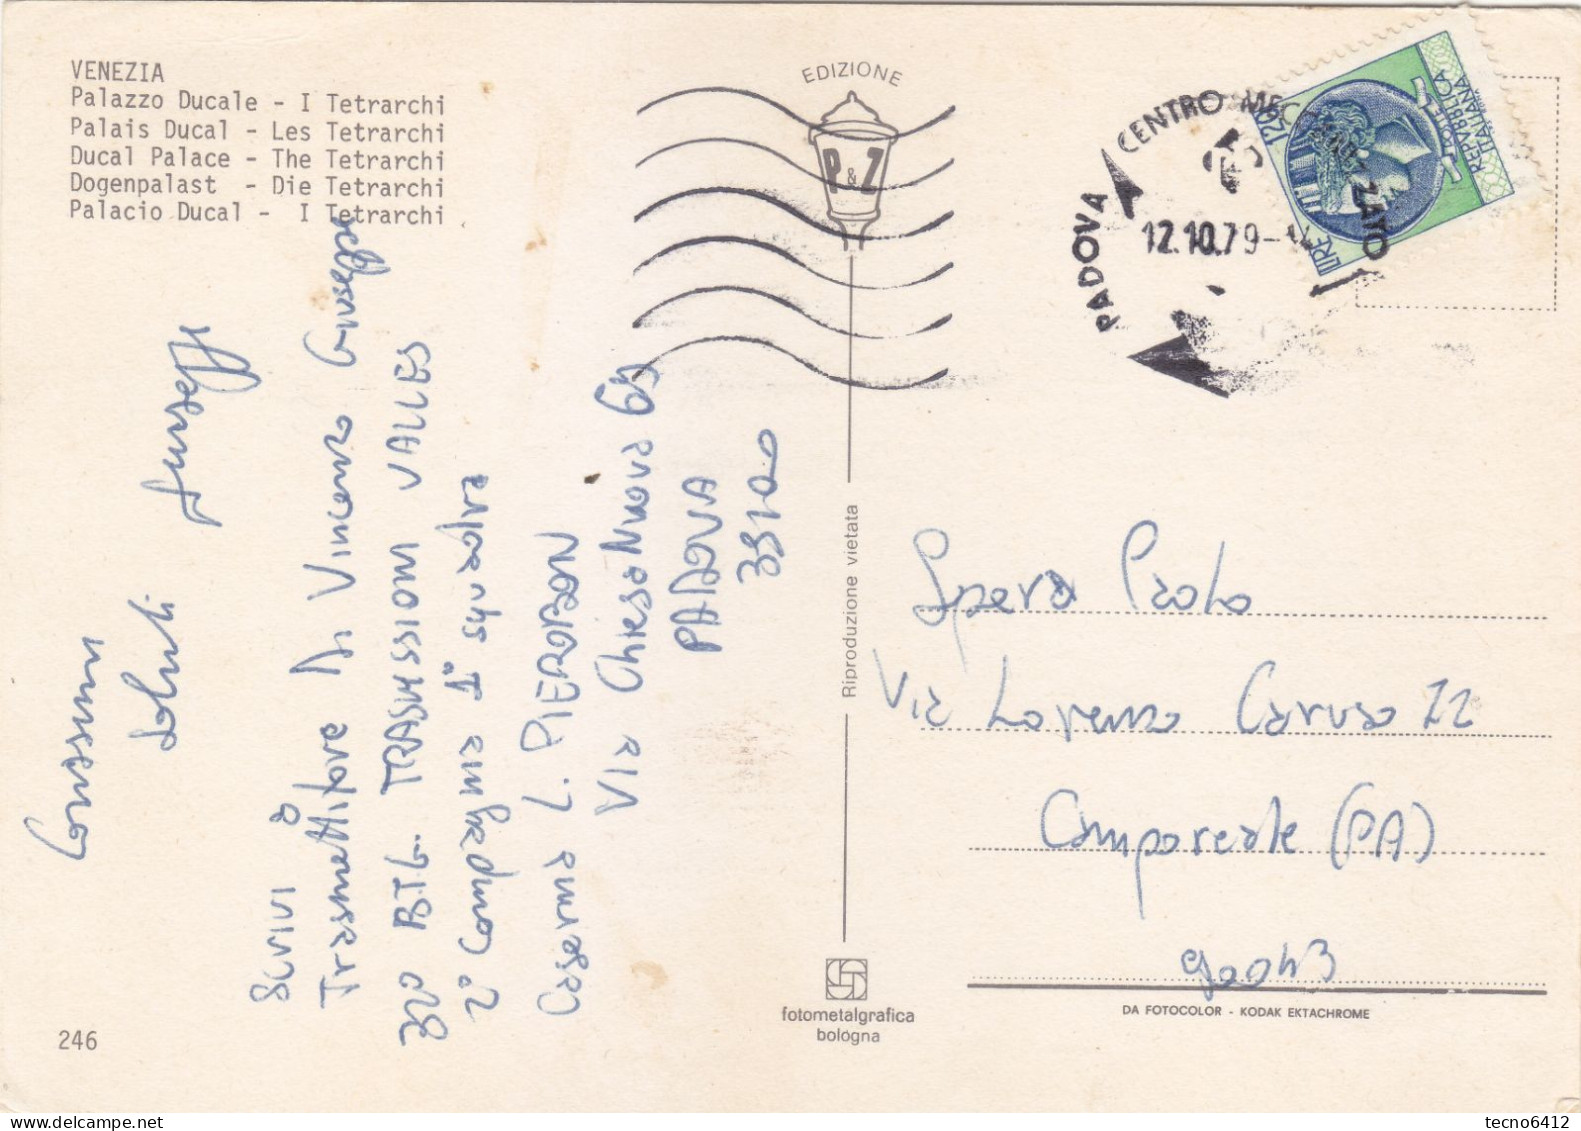 VENEZIA
Palazzo Ducale - I Tetrarchi
Palais Ducal - Les Tetrarchi
Ducal Palace - The Tetrarchi
Dogenpalast - Die Tetrarchi
Palacio Ducal - I Tetrarchi
Carissimi
saluti
Giuseppe
Scrivi a
Trasmettitore Di Vincenzo Giuseppe
32° BTG. TRASMISSIONI VALLES
2° Compagnia 1ª squadra
Caserma L. PIEROBON
Via Chiesa Nuova 65
PADOVA
35100
246
EDIZIONE
P & Z
Riproduzione vietata
fotometalgrafica
bologna
PADOVA CENTRO
12.10.79
LIRE 120
REPVBBLICA
ITALIANA
Spera Paolo
Via Lorenzo Caruso 22
Camporeale (PA)
90043
DA FOTOCOLOR - KODAK EKTACHROME
https://www.delcampe.net
tecno6412